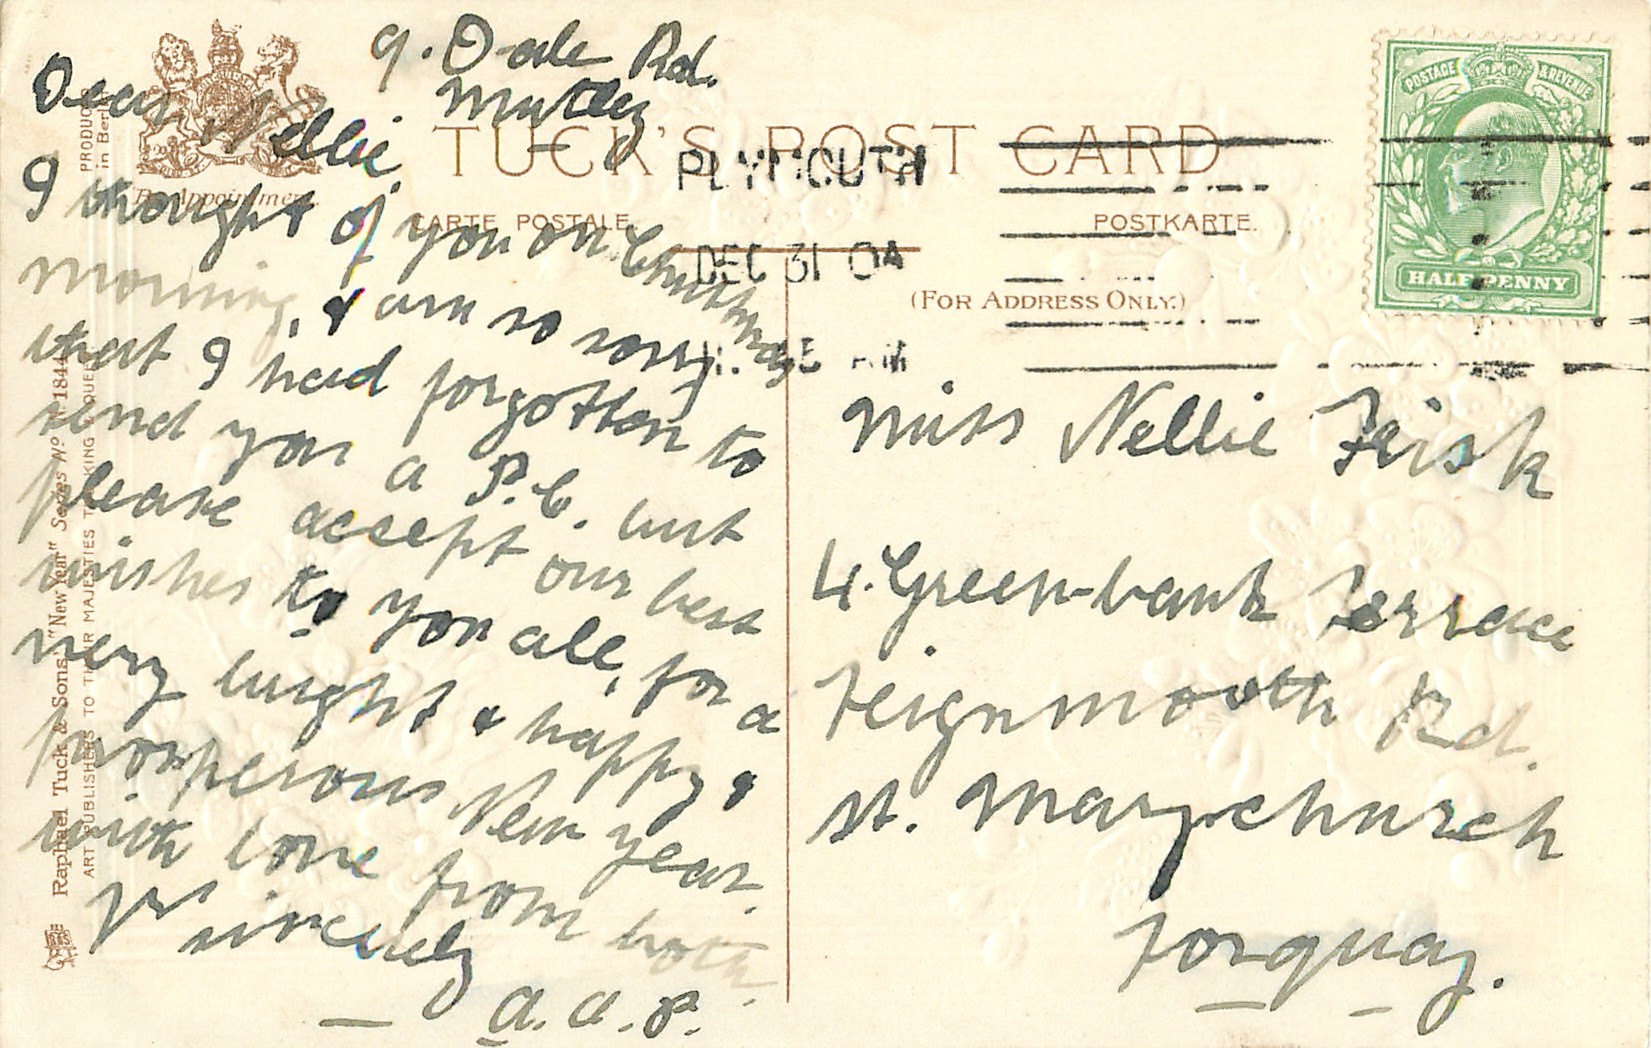 9. Dale Rd.
Mutley
Dear Nellie
I thought of you on Christmas
morning, & am so sorry
that I had forgotten to
send you a P.C. but
please accept our best
wishes to you all, for a
very bright & happy &
prosperous New Year.
with love from both.
Yr sincerely
a. a. P.
TUCK'S POST CARD
CARTE POSTALE.
POSTKARTE.
(FOR ADDRESS ONLY.)
PLYMOUTH
DEC 31 04
POSTAGE & REVENUE
HALF PENNY
Miss Nellie Frisk
4. Green-bank Terrace
Teignmouth Rd.
St. Mary-church
Torquay.
By Appointment.
Raphael Tuck & Sons' "New Year" Series No. N. 1844.
ART PUBLISHERS TO THEIR MAJESTIES THE KING & QUEEN
PRODUCED
in Berlin